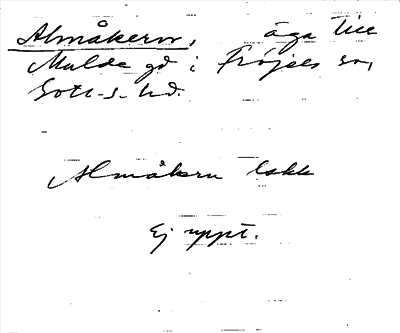 Almåkern, äga till
Mulde gd i Fröjels sn,
Gotl. s. hd.
Almåkern lskk
Ej uppt.